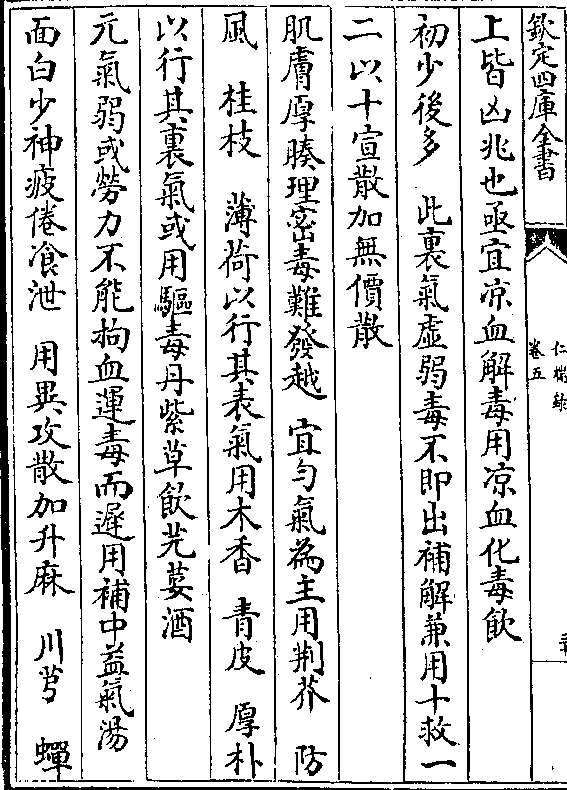 欽定四庫全書
仁端錄
卷五
上皆凶兆也亟宜凉血解毒用凉血化毒飲
初少後多　此裏氣虛弱毒不即出補解兼用十救一
二以十宣散加無價散
肌膚厚腠理密毒難發越　宜勻氣為主用荆芥　防
風　桂枝　薄荷以行其表氣用木香　青皮　厚朴
以行其裏氣或用驅毒丹紫草飲芫荽酒
元氣弱或勞力不能拘血運毒而遲用補中益氣湯
面白少神疲倦飡泄　用異攻散加升麻　川芎　蟬